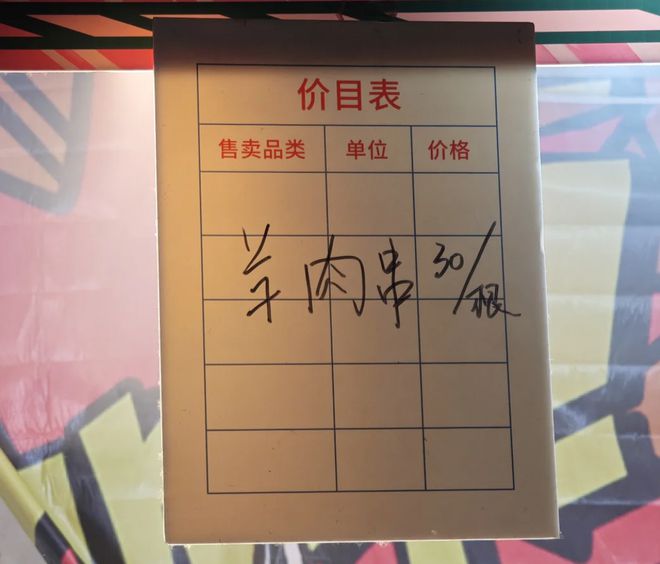 价目表
售卖品类 单位 价格
羊肉串 30/根